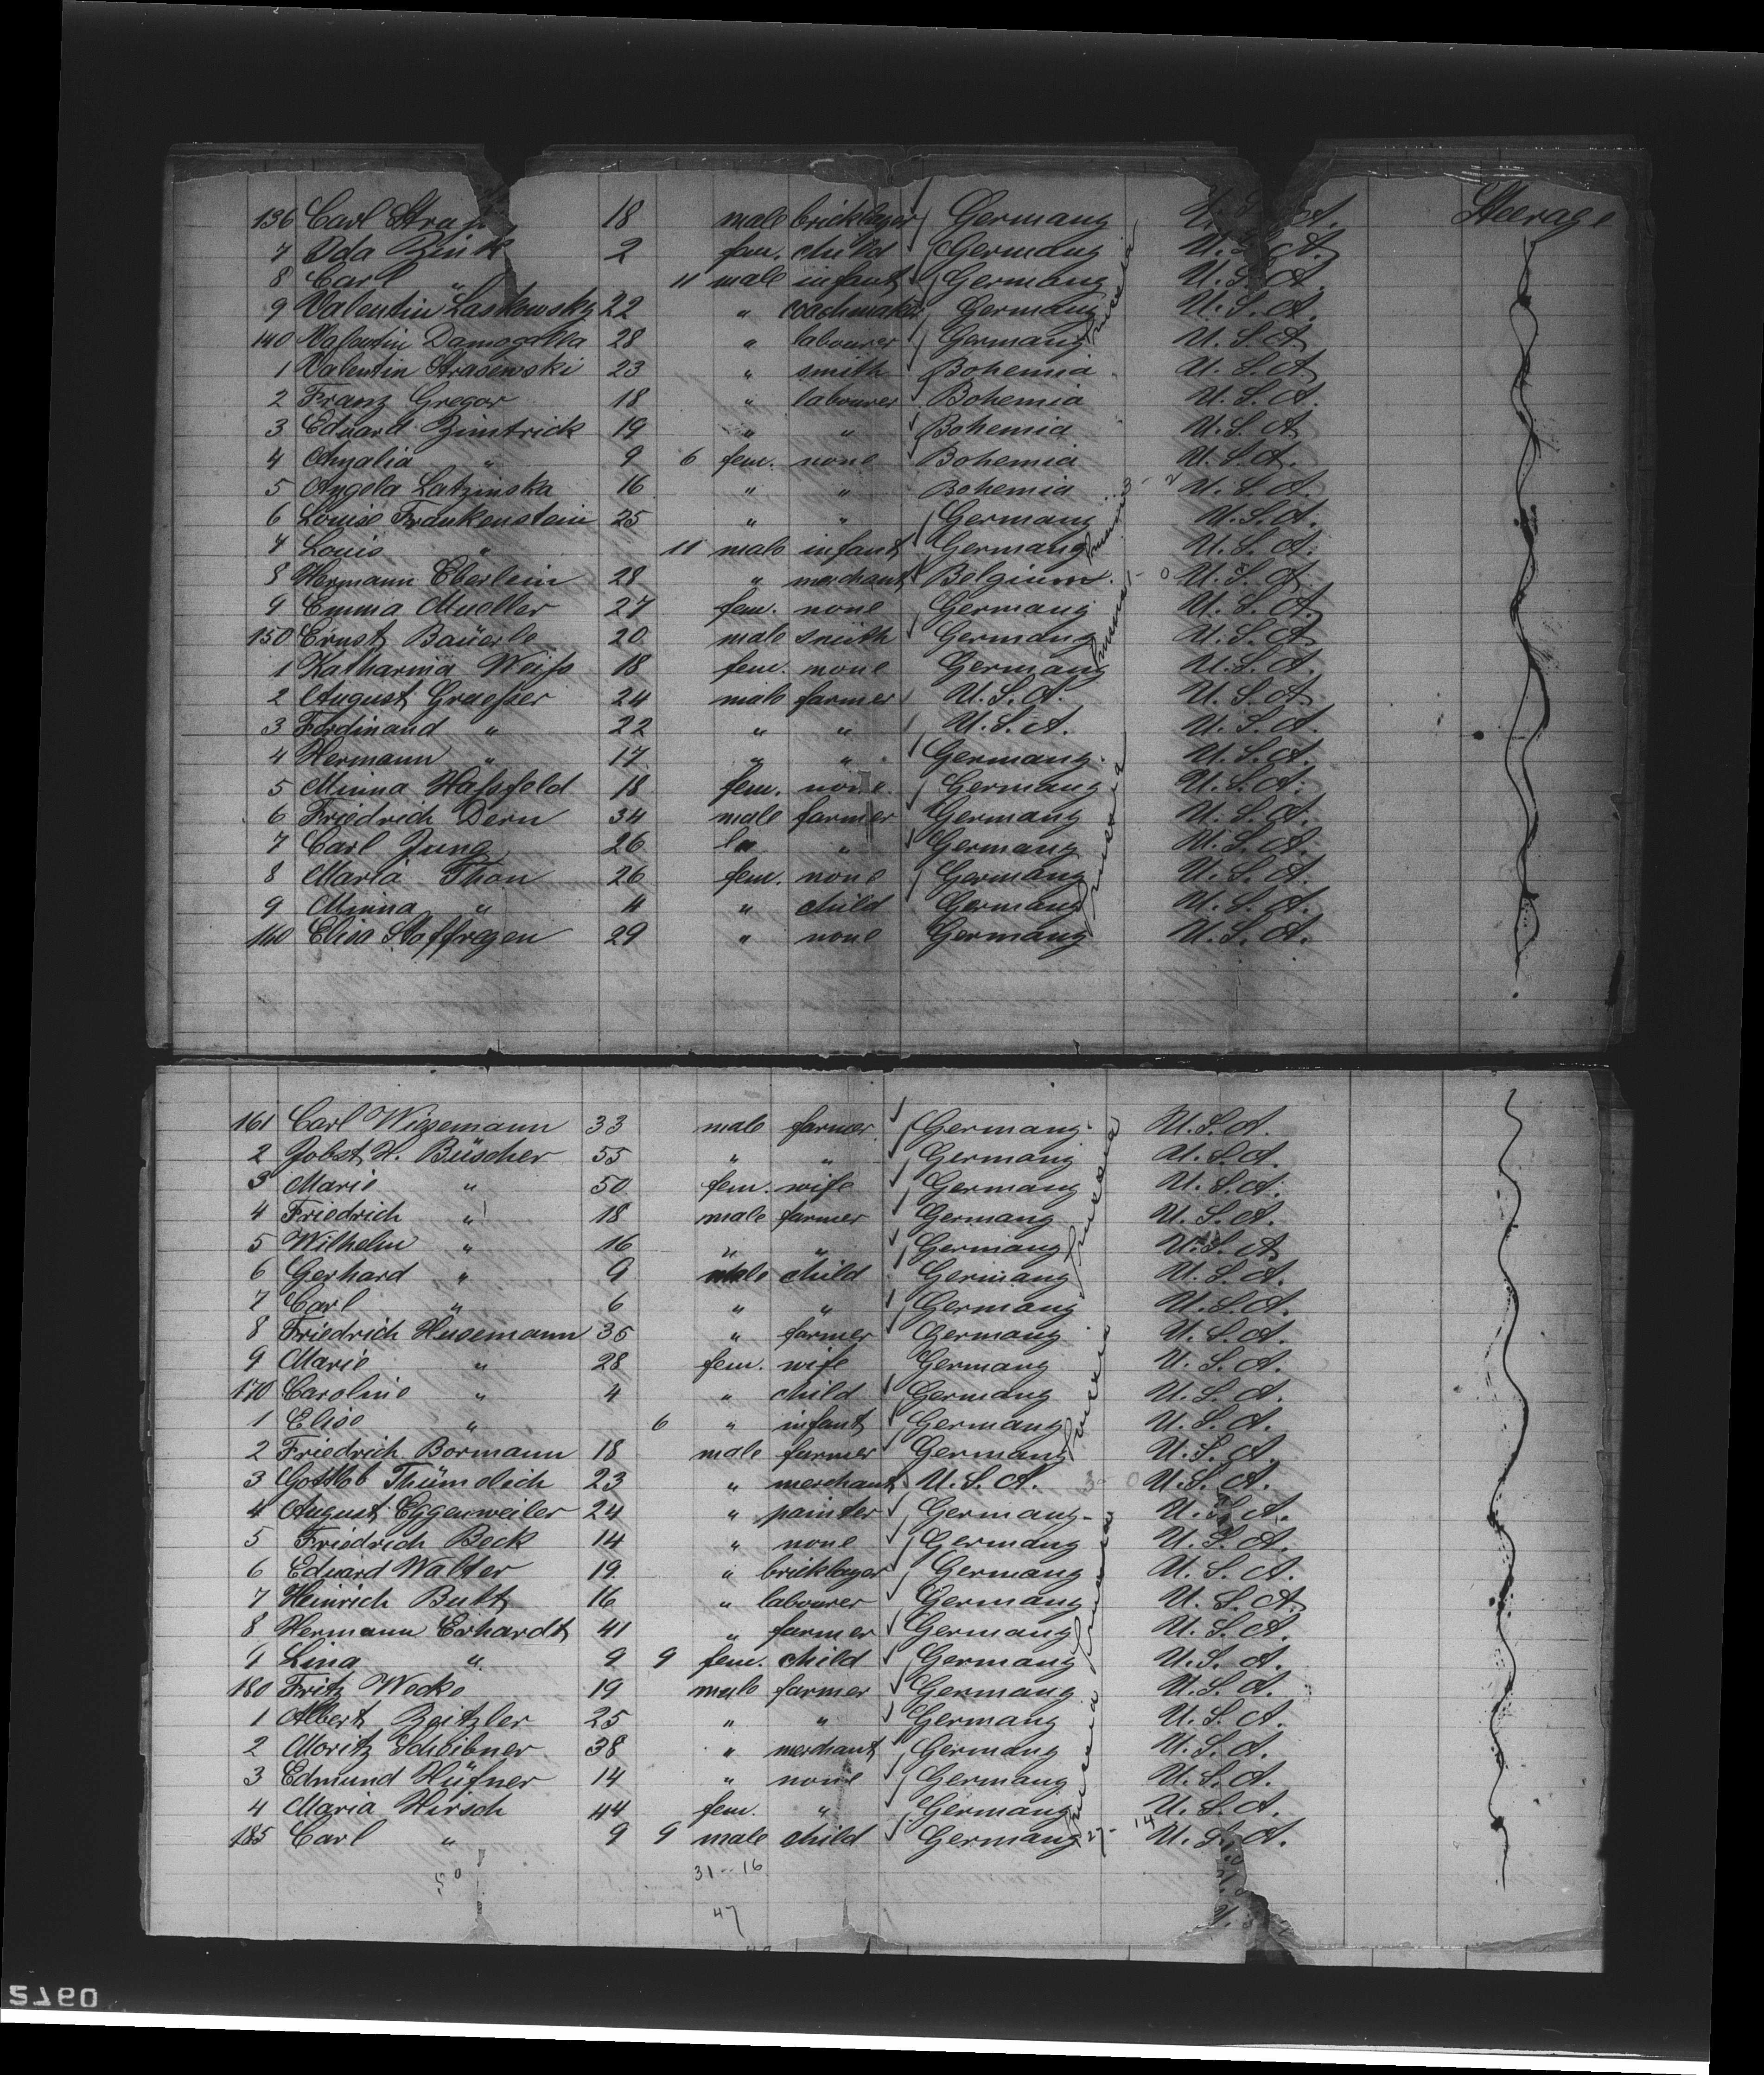 Steerage
136 Carl 18 male bricklayer Germany U. S. A.
7 Ida Zink 2 fem. child Germany U. S. A.
8 Carl " 11 male infant Germany U. S. A.
9 Valentin Laskowsky 22 " coachmaker Germany U. S. A.
140 Valentin Damogalla 28 " labourer Germany U. S. A.
1 Valentin Strasewski 23 " smith Bohemia U. S. A.
2 Franz Gregor 18 " labourer Bohemia U. S. A.
3 Eduard Zimtrick 19 " " Bohemia U. S. A.
4 Amalia " 9 6 fem. none Bohemia U. S. A.
5 Angela Latzinska 16 " " Bohemia U. S. A.
6 Louise Frankenstein 25 " " Germany U. S. A.
7 Louis " 11 male infant Germany U. S. A.
8 Hermann Eberlein 28 " merchant Belgium U. S. A.
9 Emma Mueller 27 fem. none Germany U. S. A.
150 Ernst Bäuerle 20 male smith Germany U. S. A.
1 Katharina Weiss 18 fem. none Germany U. S. A.
2 August Graesser 24 male farmer U. S. A. U. S. A.
3 Ferdinand " 22 " " U. S. A. U. S. A.
4 Hermann " 17 " " Germany U. S. A.
5 Minna Hassfeld 18 fem. none Germany U. S. A.
6 Friedrich Dern 34 male farmer Germany U. S. A.
7 Carl Jung 26 " Germany U. S. A.
8 Maria Thon 26 fem. none Germany U. S. A.
9 Minna " 4 " child Germany U. S. A.
160 Elisa Stoffregen 29 " none Germany U. S. A.
161 Carl Wiesemann 33 male farmer Germany U. S. A.
2 Jobst H. Büscher 55 " " Germany U. S. A.
3 Marie " 50 fem. wife Germany U. S. A.
4 Friedrich " 18 male farmer Germany U. S. A.
5 Wilhelm " 16 " " Germany U. S. A.
6 Gerhard " 9 male child Germany U. S. A.
7 Carl " 6 " " Germany U. S. A.
8 Friedrich Husemann 35 " farmer Germany U. S. A.
9 Marie " 28 fem. wife Germany U. S. A.
170 Caroline " 4 " child Germany U. S. A.
1 Elise " 6 " infant Germany U. S. A.
2 Friedrich Bormann 18 male farmer Germany U. S. A.
3 Gottlob 23 " merchant U. S. A. U. S. A.
4 August Eggenweiler 24 " painter Germany U. S. A.
5 Friedrich Beck 14 " none Germany U. S. A.
6 Eduard Walter 19 " bricklayer Germany U. S. A.
7 Heinrich Butt 16 " labourer Germany U. S. A.
8 Hermann Erhardt 41 " farmer Germany U. S. A.
9 Lina " 9 9 fem. child Germany U. S. A.
180 Fritz Wecke 19 male farmer Germany U. S. A.
1 Albert Zeitzler 25 " " Germany U. S. A.
2 Moritz Scheibner 38 " merchant Germany U. S. A.
3 Edmund Hüfner 14 " none Germany U. S. A.
4 Maria Hirsch 44 fem. " Germany U. S. A.
185 Carl " 9 9 male child Germany 27 - 14 U. S. A.
31 - 16
47